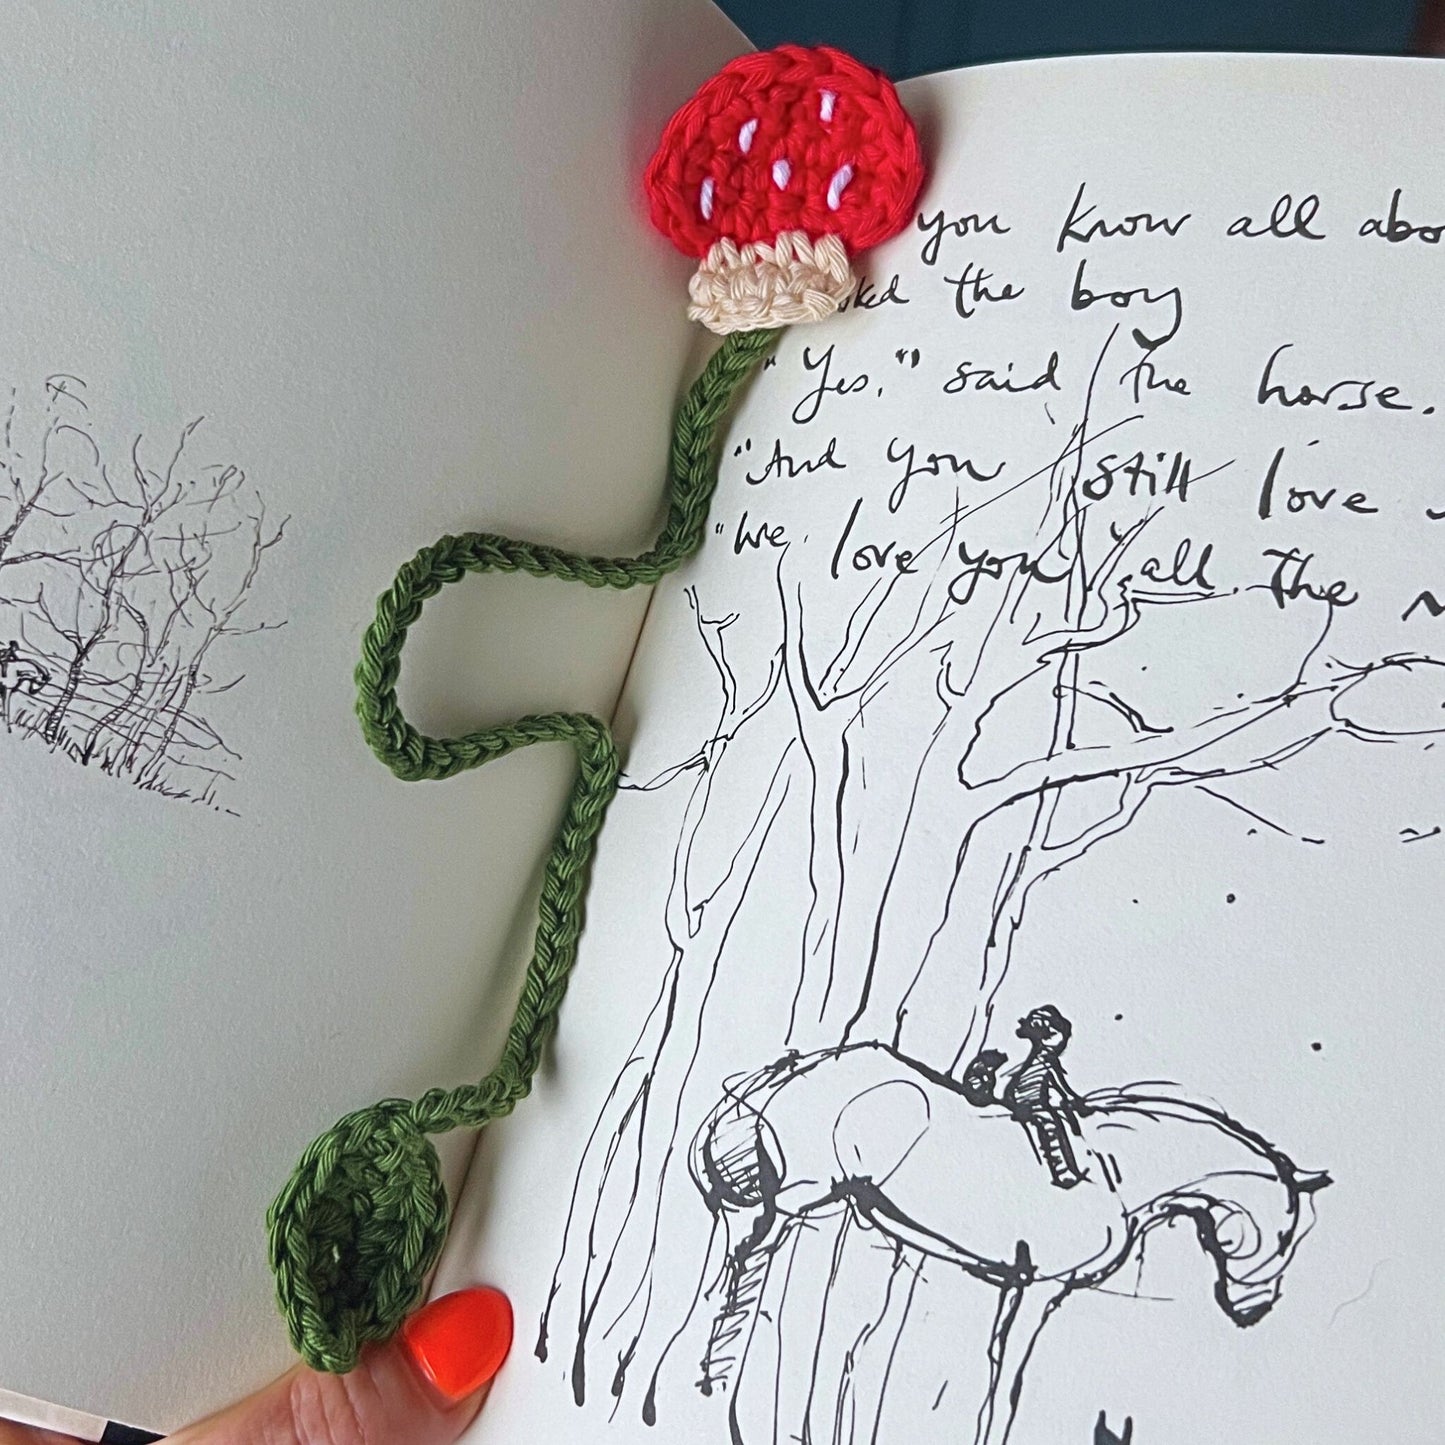 you know all abo
ked the boy
"Yes," said the horse.
"And you still love
"We love you all the